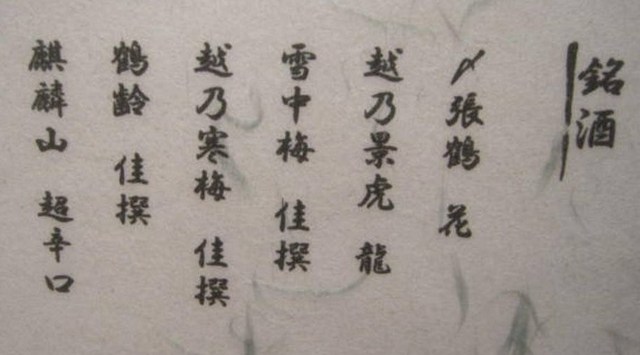 銘酒
〆張鶴 花
越乃景虎 龍
雪中梅 佳撰
越乃寒梅 佳撰
鶴齢 佳撰
麒麟山 超辛口